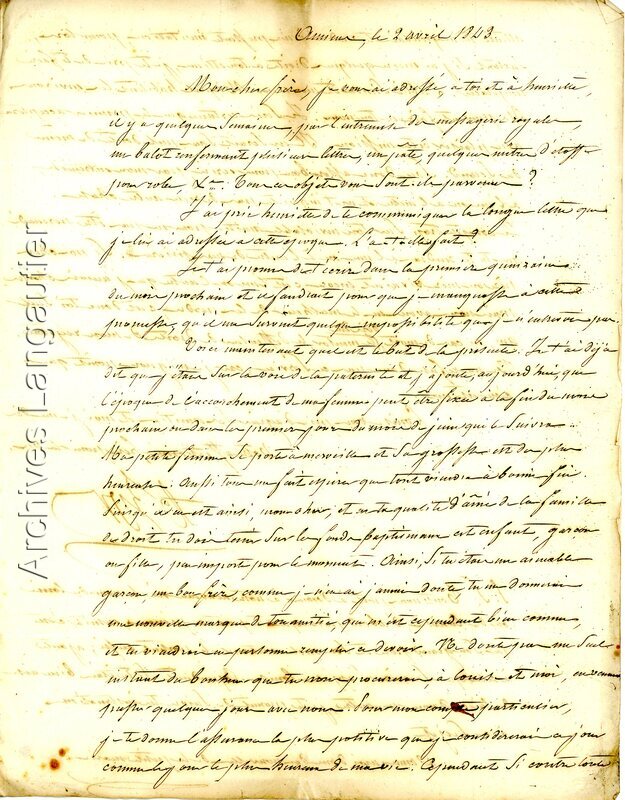 Amiens, le 2 avril 1843.
Mon cher frère, je vous ai adressé, à toi et à henriette,
il y a quelques Semaines, par l'entremise des messageries royales,
un balot renfermant plusieurs lettres, un pâté, quelques mètres d'étoffe
pour robe, &a. Tous ces objets vous Sont-ils parvenus ?
J'ai prié henriette de te communiquer la longue lettre que
je lui ai adressée à cette époque. L'a-t-elle fait ?
Je t'ai promis de t'écrire dans la première quinzaine
du mois prochain et il faudrait pour que je manquasse à cette
promesse, qu'il me Survint quelque impossibilité que je n'entrevois pas.
Voici maintenant quel est le but de la présente. Je t'ai déjà
dit que j'étais Sur la voie de la paternité et j'ajoute, aujourd'hui, que
l'époque de l'accouchement de ma femme peut être fixée à la fin du mois
prochain ou dans les premiers jours du mois de juin qui le Suivra.
Ma petite femme Se porte à merveille et Sa grossesse est des plus
heureuses. Aussi tout me fait espérer que tout viendra à bonne fin.
Puisqu'il en est ainsi, mon cher, et en ta qualité d'aîné de la famille
de droit tu dois tenir Sur les fonds baptismaux cet enfant, garçon
ou fille, peu importe pour le moment. Ainsi, Si tu étais un aimable
garçon un bon frère, comme je n'en ai jamais douté, tu me donnerais
une nouvelle marque de ton amitié, qui m'est cependant bien connue,
et tu viendrais en personne remplir ce devoir. Ne doute pas un Seul
instant du bonheur que tu nous procurerais, à Louise et moi, en venant
passer quelques jours avec nous. Pour mon compte particulier,
je te donne l'assurance la plus positive que je considérerais ce jour
comme le jour le plus heureux de ma vie. Cependant Si contre toute
Archives Langautier